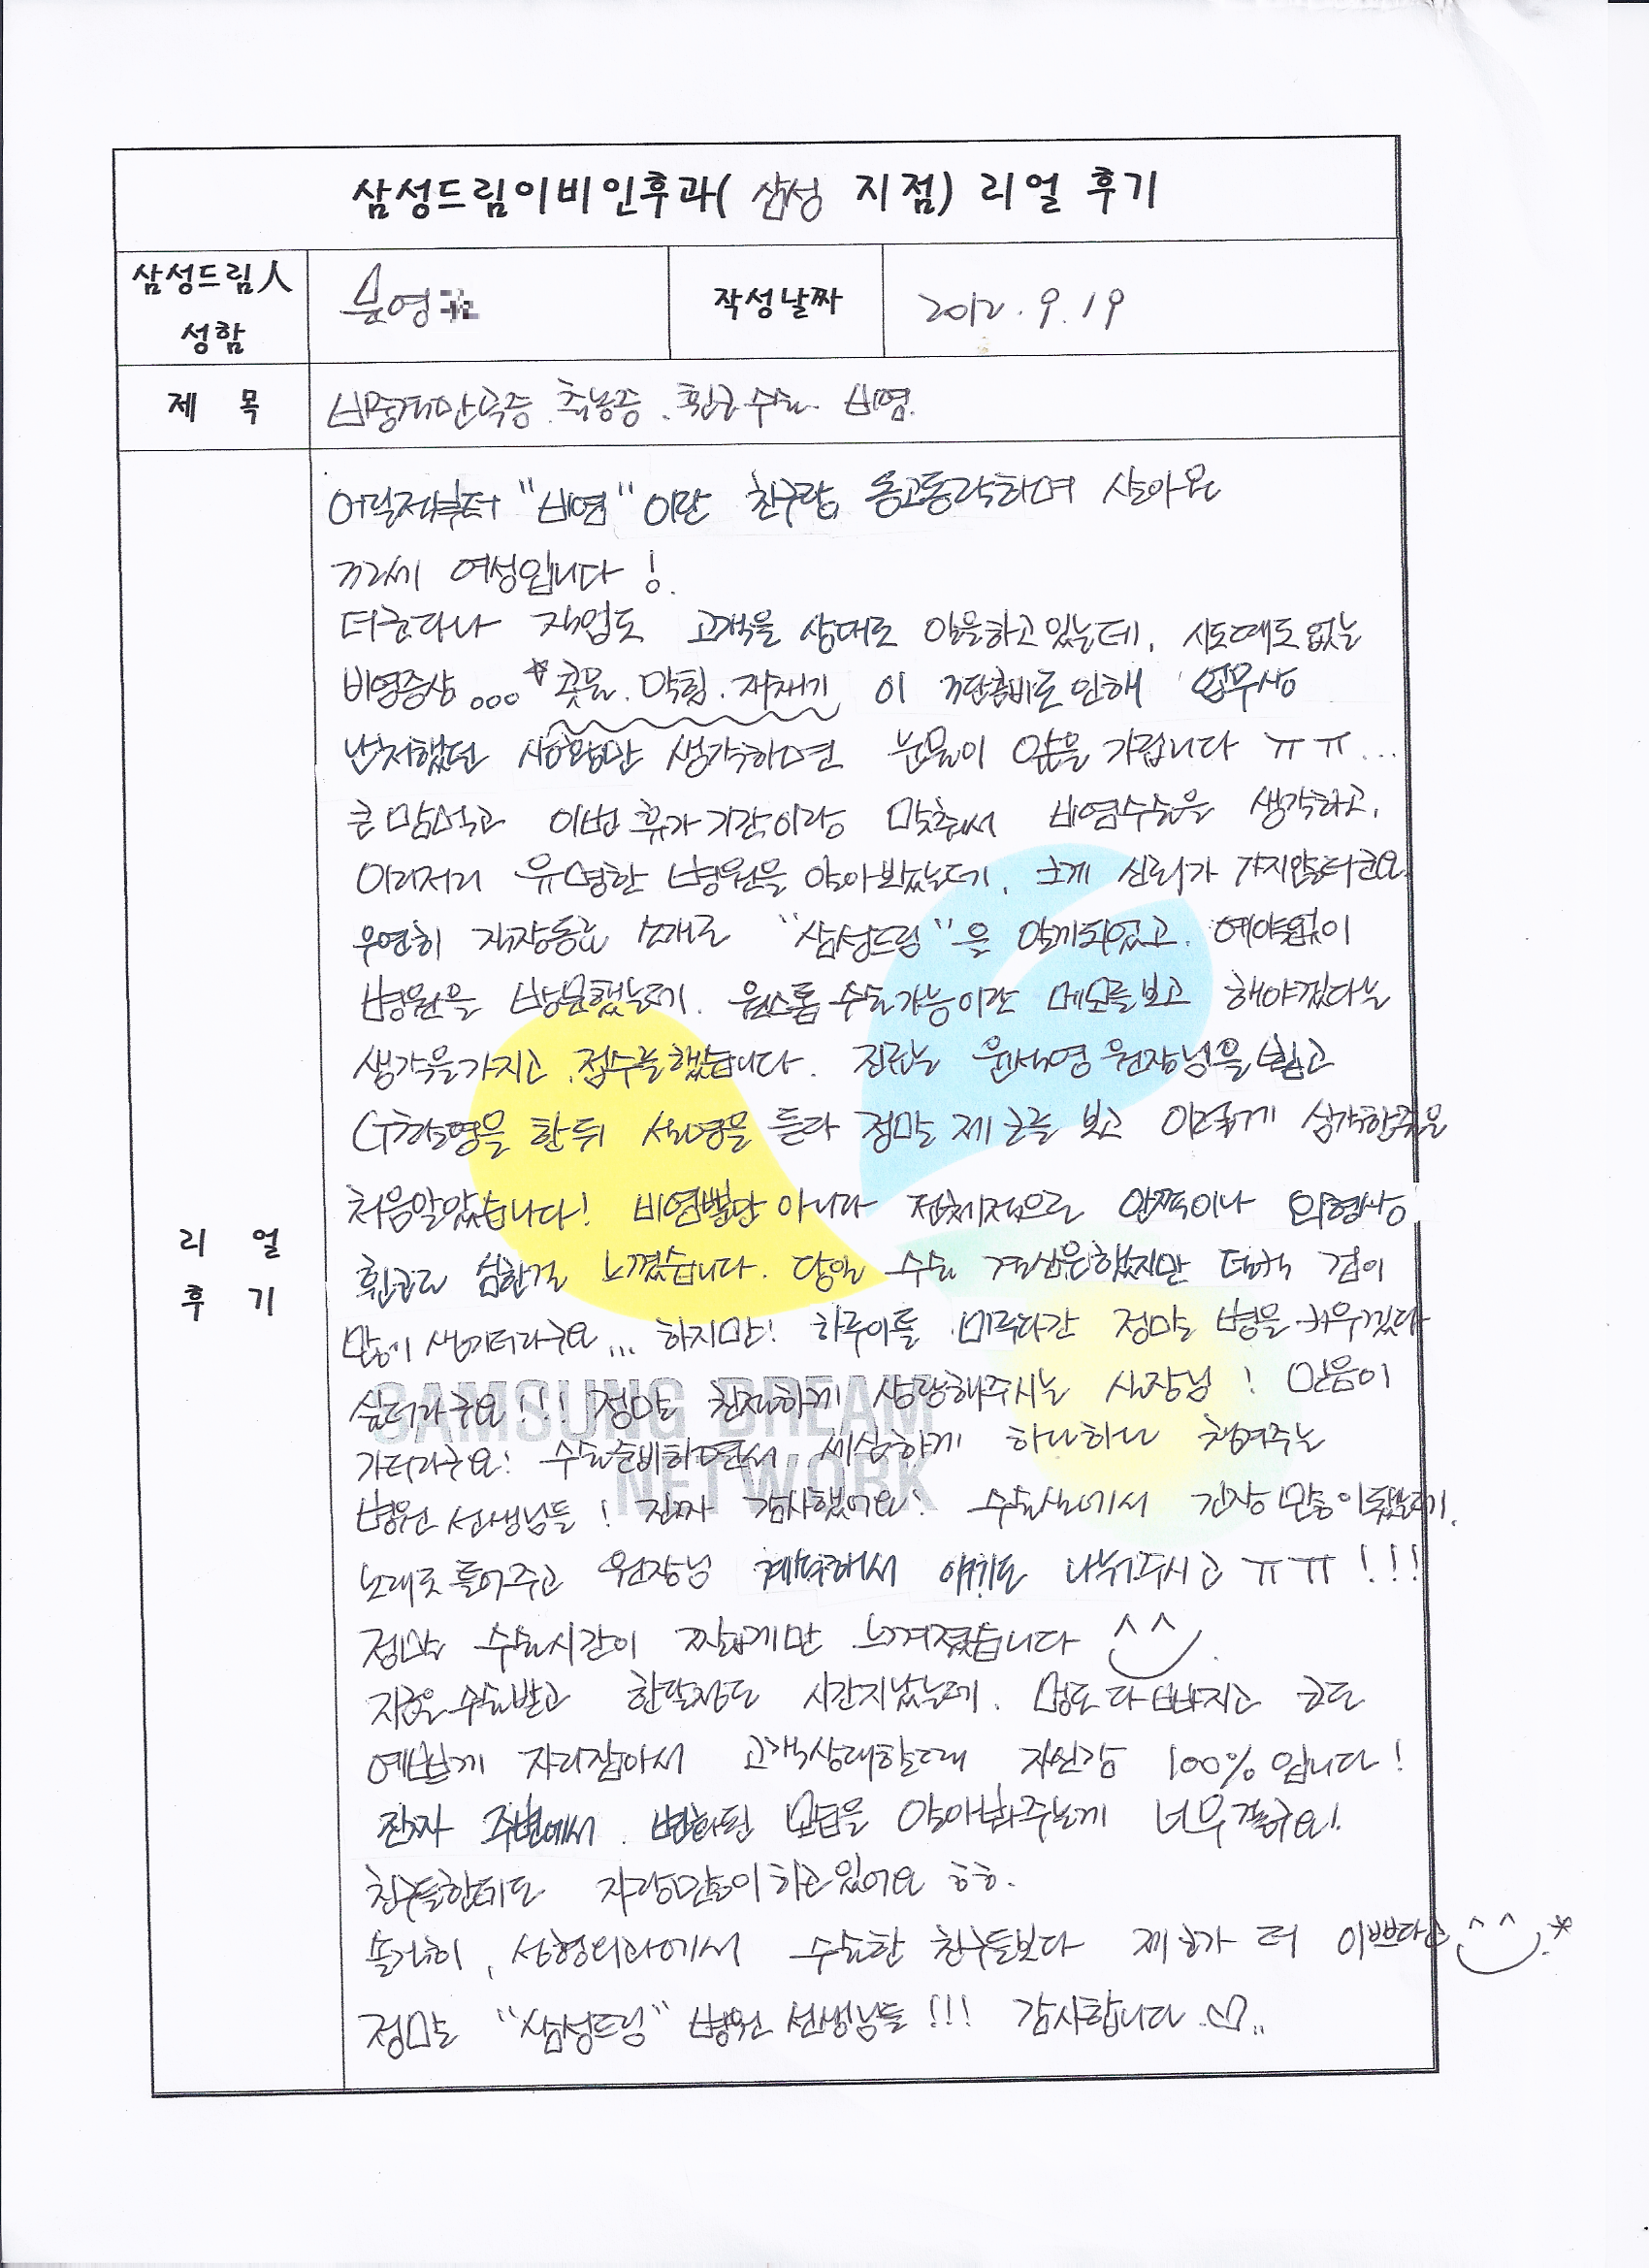 삼성드림이비인후과( 삼성 지점) 리얼 후기
삼성드림人
성함
영
작성날짜
2012. 9. 19
제 목
비중격만곡증. 축농증. 휜코수술. 비염.
어릴적부터 "비염"이란 친구랑 동고동락하며 살아온
32세 여성입니다!
더군다나 직업도 고객을 상대로 일을하고있는데, 시도때도없는
비염증상... 콧물. 막힘. 재채기 이 3단콤비로인해 업무상
난처했던 상황만 생각하면 눈물이 앞을 가립니다 ㅠㅠ...
큰맘먹고 이번 휴가기간이랑 맞춰서 비염수술을 생각하고,
이리저리 유명한 병원을 알아봤는데, 크게 신뢰가 가지않더군요
우연히 직장동료 소개로 "삼성드림"을 알게되었고. 예약없이
병원을 방문했는데. 원스톱수술가능이란 메모를보고 해야겠다는
생각을가지고 접수를했습니다. 진료는 원장님을 뵙고
CT촬영을 한뒤 설명을 듣다 정말 제 코를 보고 이렇게 심각한줄은
처음알았습니다! 비염뿐만 아니라 전체적으로 안쪽이나 외형상
휜코란 심한걸 느꼈습니다. 당일 수술 결심은했지만 덜컥 겁이
많이 생기더라구요... 하지만! 하루이틀 미루다간 정말 병을 키우겠다
싶더라구요!!! 정말 친절하게 상담해주시는 실장님! 믿음이
가더라구요! 수술준비하면서 세심하게 하나하나 챙겨주는
병원선생님들! 진짜 감사했어요! 수술실에서 긴장많이됐는데,
노래도틀어주고 원장님 계속해서 얘기도 나눠주시고 ㅠㅠ!!!
정말 수술시간이 짧게만 느껴졌습니다 ^^
지금은수술받고 한달정도 시간지났는데. 멍도다빠지고 코도
예쁘게 자리잡아서 고객상대할때 자신감 100%입니다!
진짜 주변에서 변화된 모습을 알아봐주는게 너무좋구요!.
친구들한테도 자랑많이하고있어요 ㅎㅎ.
솔직히, 성형외과에서 수술한 친구들보다 제코가 더 이쁘다고 ^^*
정말 "삼성드림" 병원 선생님들!!! 감사합니다 ♡..
리 얼
후 기
SAMSUNG DREAM
NETWORK